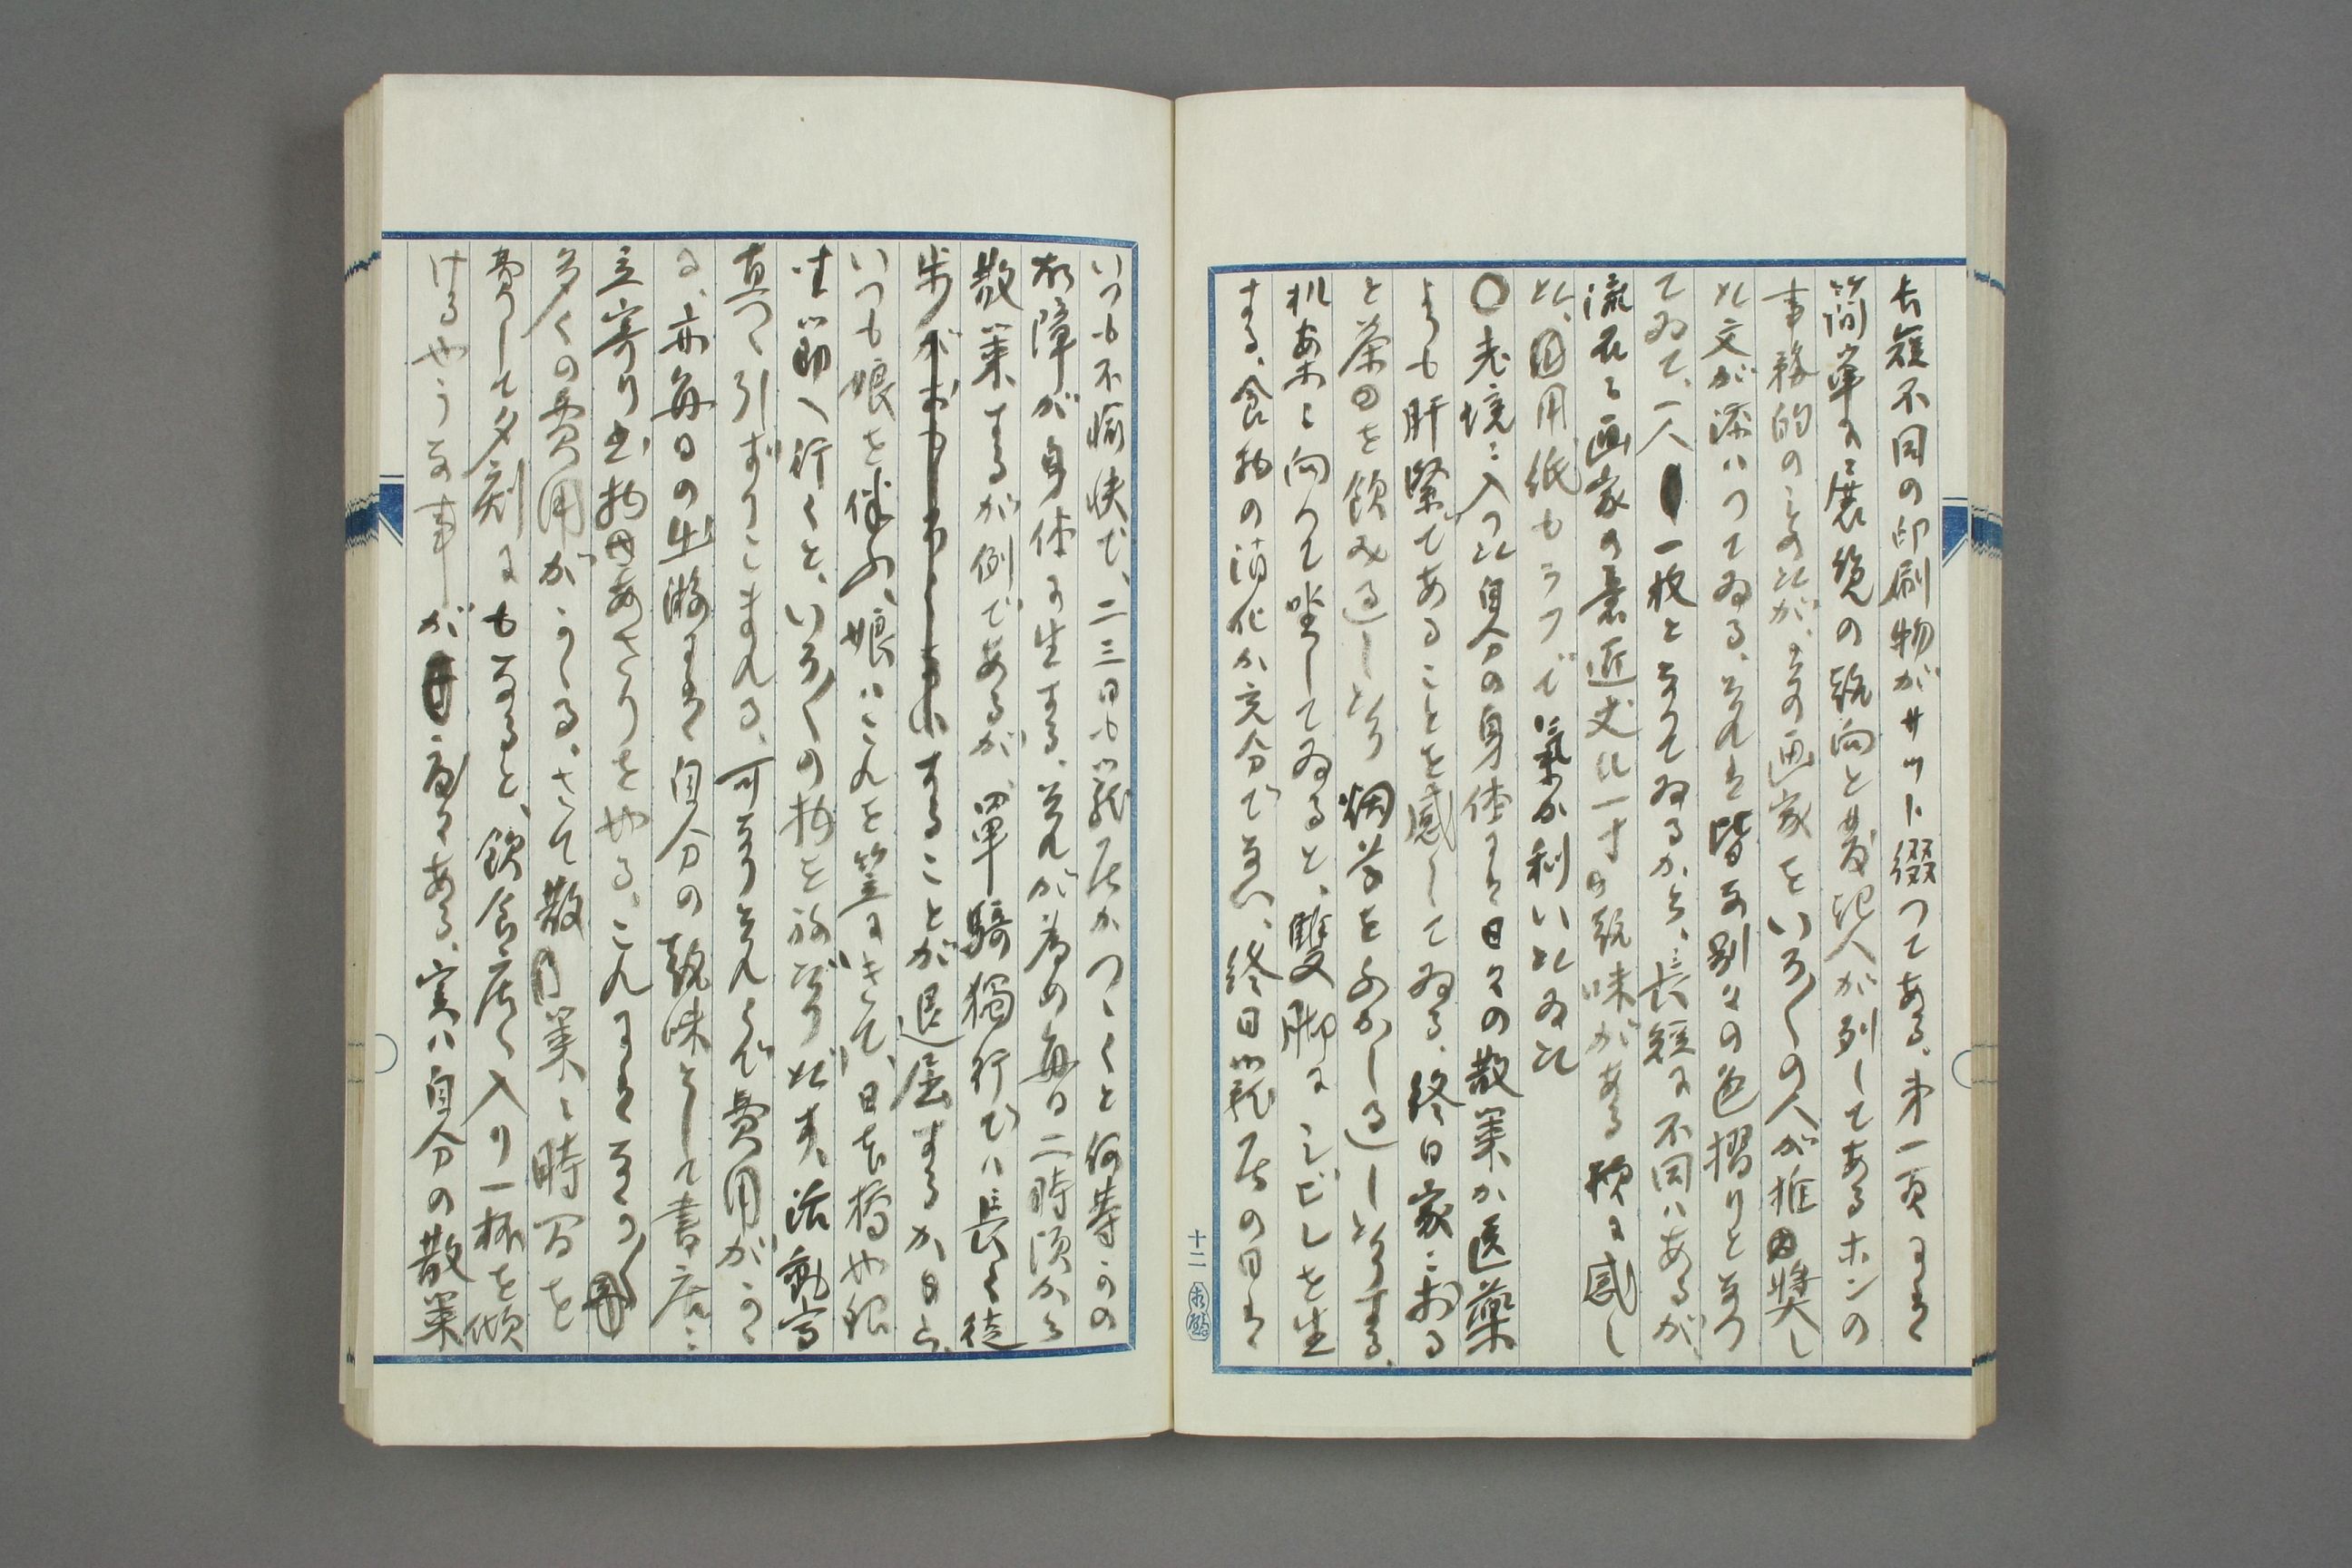 長短不同の印刷物がサット綴つてある、第一頁には
簡單に展覧の趣向と発起人が列してあるホンの
事務的のものだが、その画家をいろ〱の人が推奨し
た文が添ハつてゐる、それは皆な別々の色摺りとなつ
てゐて、一人一枚となつてゐるから、長短に不同ハあるが、
流石に画家の意匠丈に一寸趣味がある様に感し
た、用紙もラフで氣か利いたゐた
〇老境ニ入つた自分の身体には日々の散策か医藥
よりも肝緊であることを感してゐる、終日家ニおる
と茶を飲み過したり烟草をふかし過したりする、
机案ニ向つて坐してゐると、雙脚にシビレを生
する、食物の消化か充分でない、終日籠居の日は
十二
いつも不愉快で、二三日も籠居かつゝくと何等かの
故障が身体に生する、それが為め毎日二時頃から
散策するが例であるが、單騎獨行でハ長く徒
歩することが退屈するから、
いつも娘を伴ふ、娘ハこれを笠にきて、日本橋や銀
坐の方へ行くと、いろ〱の物を強ばりだす、活動写
真へ引ずりこまれる、可なりそれらで費用がかゝ
る、亦毎日の出游には自分の趣味として書店ニ
立寄り書物あさりをやる、これには中々
多くの費用がかゝる、さて散策ニ時間を
費して夕刻にもなると、飲食店へ入り一杯を傾
けるやうな事が度々ある、実ハ自分の散策